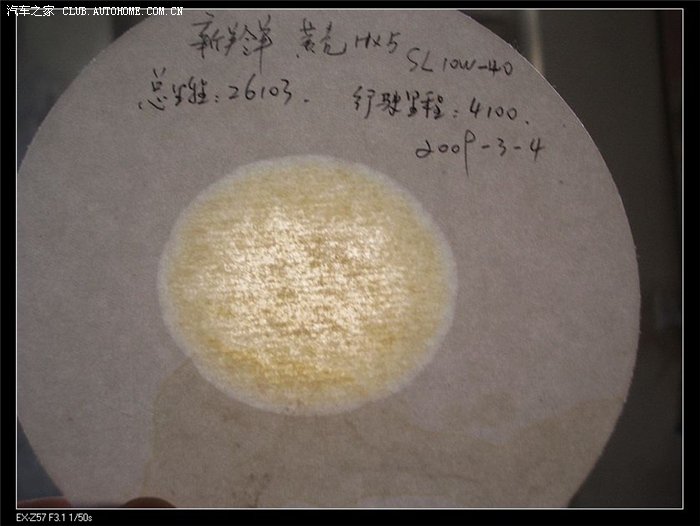 汽车之家 CLUB.AUTOHOME.COM.CN
新羚羊 黄壳 HX5 SL 10W-40
总里程：26103. 行驶里程：4100.
2009-3-4
EX-Z57 F3.1 1/50s